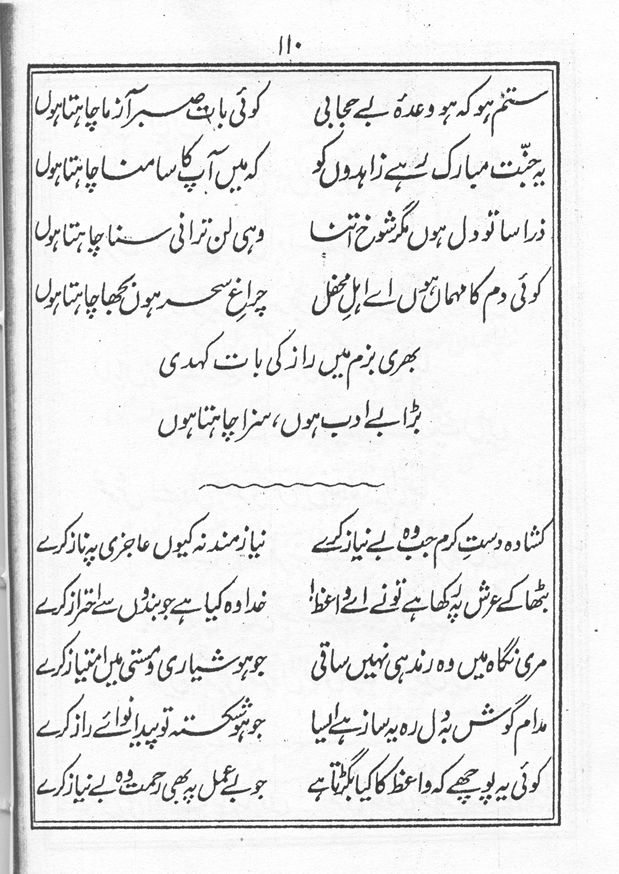 ۱۱۰
ستم ہو کہ ہو وعدۂ بے حجابی کوئی بات صبر آزما چاہتا ہوں
یہ جنّت مبارک رہے زاہدوں کو کہ میں آپ کا سامنا چاہتا ہوں
ذرا سا تو دل ہوں مگر شوخ اتنا وہی لن ترانی سنا چاہتا ہوں
کوئی دم کا مہماں ہوں اے اہلِ محفل چراغِ سحر ہوں بجھا چاہتا ہوں
بھری بزم میں راز کی بات کہدی
بڑا بے ادب ہوں، سزا چاہتا ہوں
کشادہ دستِ کرم جب وہ بے نیاز کرے نیازمند نہ کیوں عاجزی پہ ناز کرے
بٹھا کے عرش پہ رکھا ہے تو نے اے واعظ! خدا وہ کیا ہے جو بندوں سے احتراز کرے
مری نگاہ میں وہ رند ہی نہیں ساقی جو ہوشیاری و مستی میں امتیاز کرے
مدام گوش بہ دل رہ یہ ساز ہے ایسا جو ہو شکستہ تو پیدا نوائے راز کرے
کوئی یہ پوچھے کہ واعظ کا کیا بگڑتا ہے جو بے عمل پہ بھی رحمت وہ بے نیاز کرے